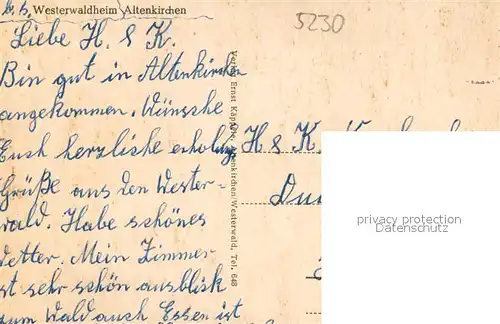 Westerwaldheim Altenkirchen
5230
Liebe H. & K.
Bin gut in Altenkirchen
angekommen. Wünsche
Euch herzliche erholung
Grüße aus den Wester-
wald. Habe schönes
Wetter. Mein Zimmer
ist sehr schön ausblick
zum Wald auch Essen ist
Verlag Ernst Käppele, Altenkirchen/Westerwald, Tel. 648
H & K.
privacy protection
Datenschutz